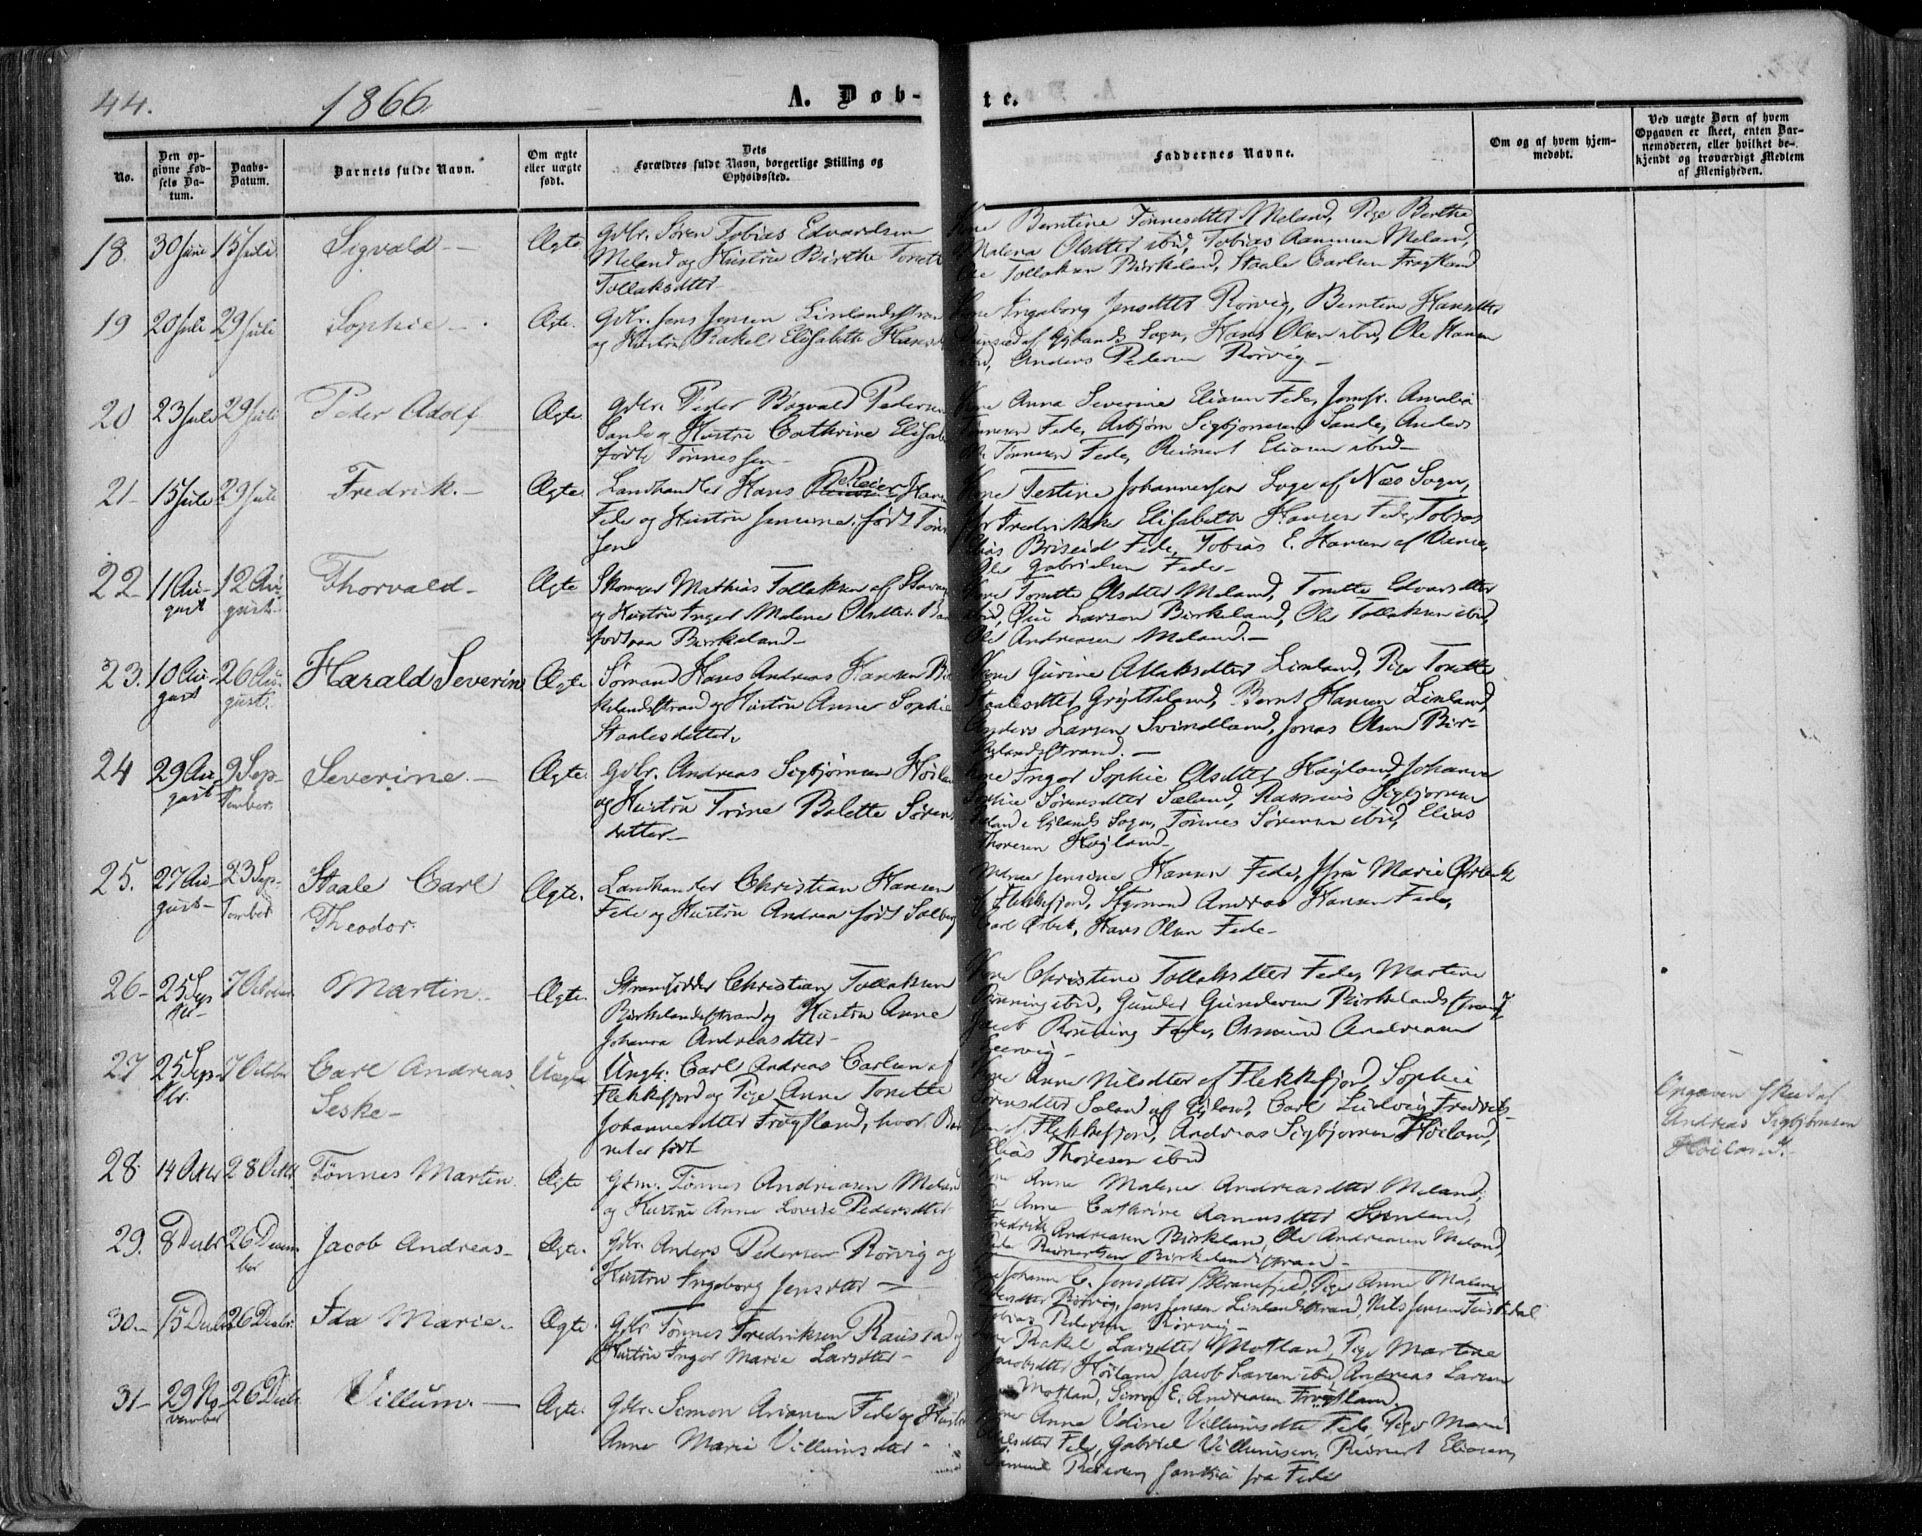 44.
1866
A. Døb-
te.
No.
Den op-
givne Fød-
sels Da-
tum.
Daabs-
Datum.
Barnets fulde Navn.
Om ægte
eller uægte
født.
Dets
Forældres fulde Navn, borgerlige Stilling og
Opholdssted.
Faddernes Navne.
Om og af hvem hjem-
medøbt.
Ved uægte Børn af hvem
Opgaven er skeet, enten Bar-
nemoderen, eller hvilket be-
kjendt og troværdigt Medlem
af Menigheden.
18. 30 Juni 15 Juli Sigvald Ægte
Gdbr. Søren Tobias Edvardsen
Meland og Hustru Birthe Tonette
Tollaksdtter
Kone Berntine Tønnesdtter Meland, Pige Berthe
Malena Olsdtter ibid, Tobias Aanensen Meland,
Ole Tollaksen Birkeland, Staale Carlsen Frøytland
19 20 Juli 29 Juli Sophie Ægte.
Gdbr. Jens Jensen Linlandsstran
og Hustru Rakel Elisabeth Hansdt
Kone Ingeborg Jensdtter Rørvig, Berntine Hansdtter
af Gylands Sogn, Hans Olsen ibid, Ole Hansen
ibid, Anders Pedersen Rørvig
20 23 Juli 29 Juli Peder Adolf Ægte.
Gdbr. Peder Bogvald Pedersen
Sande og Hustru Cathrine Elisabe
født Tønnessen
Kone Anna Severine Eliasen Fede, Jomfr. Amalia
Tønnesen Fede, Asbjørn Sigbjørnsen Sande, Anders
Tønnesen Fede, Reinert Eliasen ibid
21 15 Juli 29 Juli Fredrik. Ægte.
Landhandler Hans Peder Han
Fede og Hustru Jensine, født Tøn
sen
Kone Testine Johannesen Loge af Næs Sogn,
Fredrikke Elisabeth Hansen Fede, Tobias
Elias Briseid Fede, Tobias E. Hansen af
Ole Gabrielsen Fede
22 11 Au-
gust 12 Au-
gust Thorvald Ægte
Skomager Mathias Tollaksen af Stavang
og Hustru Inger Malene Olsdtter. Ba
født paa Birkeland
Kone Tonette Olsdtter Meland, Tonette Edvarsdtter
ibid, Larsen Birkeland, Ole Tollaksen ibid,
Ole Andreasen Meland.
23. 10 Au-
gust 26 Au-
gust. Harald Severin Ægte
Sømand Hans Andreas Hansen Bir
kelandsstrand og Hustru Anne Sophie
Staalesdatter.
Kone Gurine Atlaksdtter Linland, Pige Tonette
Staalesdtter Grøtteland, Bernt Hansen Linland
Anders Larsen Svindland, Jonas Olsen Bir-
kelandsstrand.
24 29 Au-
gust 9 Sep-
tember Severine. Ægte.
Gdbr. Andreas Sigbjørnsen Høilan
og Hustru Trine Bolette Sørens
datter
Kone Inger Sophie Olsdtter Høgland, Johanne
Sophie Sørensdtter Sæland, Rasmus Sigbjørnsen
i Gylands Sogn, Tønnes Sørensen ibid, Elias
Thoresen Høgland
25. 27 Au-
gust 23 Sep-
tember Staale Carl
Theodor. Ægte.
Landhandler Christian Hansen
Fede og Hustru Andrea født Salberg
Madame Jensine Hansen Fede, Marie Ørbeck
af Flekkefjord, Styrmand Andreas Hansen Fede,
Carl Ørbek, Hans Olsen Fede
26 25 Sep
tbr 7 October Martin. Ægte.
Strandsidder Christian Tollaksen
Birkelandsstrand og Hustru Anne
Johanna Andreasdtter
Kone Christine Tollaksdtter Fede, Martine
Rønning ibid, Gunder Gundersen Birkelandsstrand,
Jacob Rønning Fede, Asmund Andreasen
27 25 Sep-
tbr. 7 October Carl Andreas
Seske Uægte
Ungk. Carl Andreas Carlsen af
Flekkefjord og Pige Anne Tonette
Johannesdtter Frøytland, hvor Bar
net er født
Kone Anne Nilsdtter af Flekkefjord, Sophie
Sørensdtter Sæland af Gyland, Carl Ludvig Fredriks-
sen af Flekkefjord, Andreas Sigbjørnsen Høiland,
Elias Thoresen ibid
Opgaven skeet af
Andreas Sigbjørnsen
Høiland.
28 14 Octbr 28 Octbr. Tønnes Martin. Ægte
Gbm. Tønnes Andreasen Meland
og Hustru Anne Lovise Pedersdtter
Kone Anne Malene Andreasdtter Meland,
Pige Anne Cathrine Aanensdtter Linland,
Fredrik Andreasen Birkland, Ole Andreasen Meland,
Peder Reinertsen Birkelandsstrand
29. 8 Decbr 26 Decem-
ber Jacob Andreas Ægte.
Gdbr. Anders Pedersen Rørvig og
Hustru Ingeborg Jensdtter
Kone Johanne C. Jensdtter Skranefjeld, Pige Anne Malene
Rørvig, Jens Jensen Linlandsstrand, Nils Jensen
Tobias Pedersen Rørvig
30. 15 Decbr 26 Decbr. Ida Marie. Ægte.
Gdbr Tønnes Fredriksen Raustad og
Hustru Inger Marie Larsdtter
Kone Rakel Larsdtter Motland, Pige Martine
Jacobsdtter Høiland, Jacob Larsen ibid, Andreas Larsen
Motland, Simon E. Andreasen Frøytland
31 29 No-
vember 26 Decbr Villum. Ægte.
Gdbr. Simon Ariansen Fede og Hustru
Anne Marie Villumsdtter
Kone Anne Udine Villumsdtter Fede, Pige Maren
Fede, Gabriel Villumsen, Reinert Eliasen,
Samuel Pedersen samtlige fra Fede